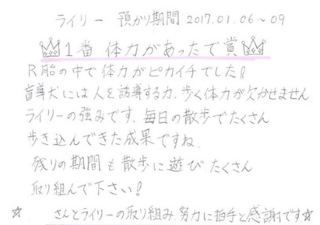 ライリー 預かり期間 2017.01.06〜09
1番 体力があったで賞
R胎の中で体力がピカイチでした!
盲導犬には人を誘導する力、歩く体力が欠かせません
ライリーの強みです。毎日の散歩でたくさん
歩き込んできた成果ですね。
残りの期間も散歩に遊びたくさん
取り組んで下さい!
☆ さんとライリーの取り組み、努力に拍手と感謝です☆